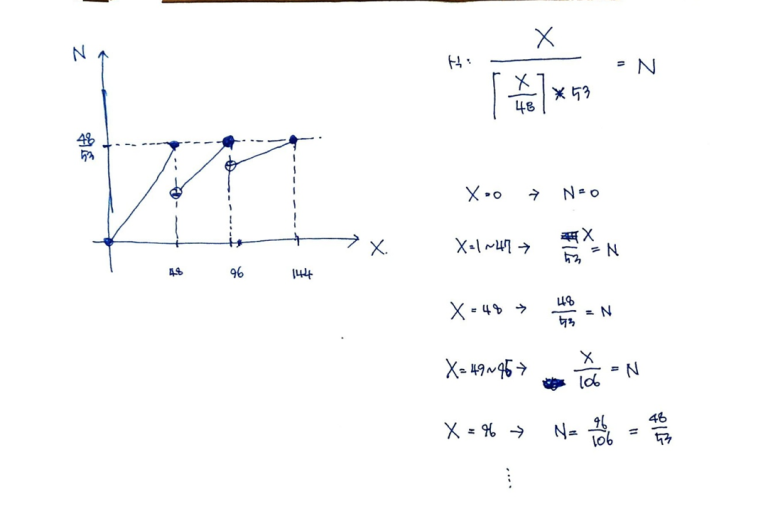 N
48/53
48 96 144 X.
H: X / (⌈X/48⌉ * 53) = N
X=0 → N=0
X=1~47 → X/53 = N
X=48 → 48/53 = N
X=49~95 → X/106 = N
X=96 → N= 96/106 = 48/53
⋮